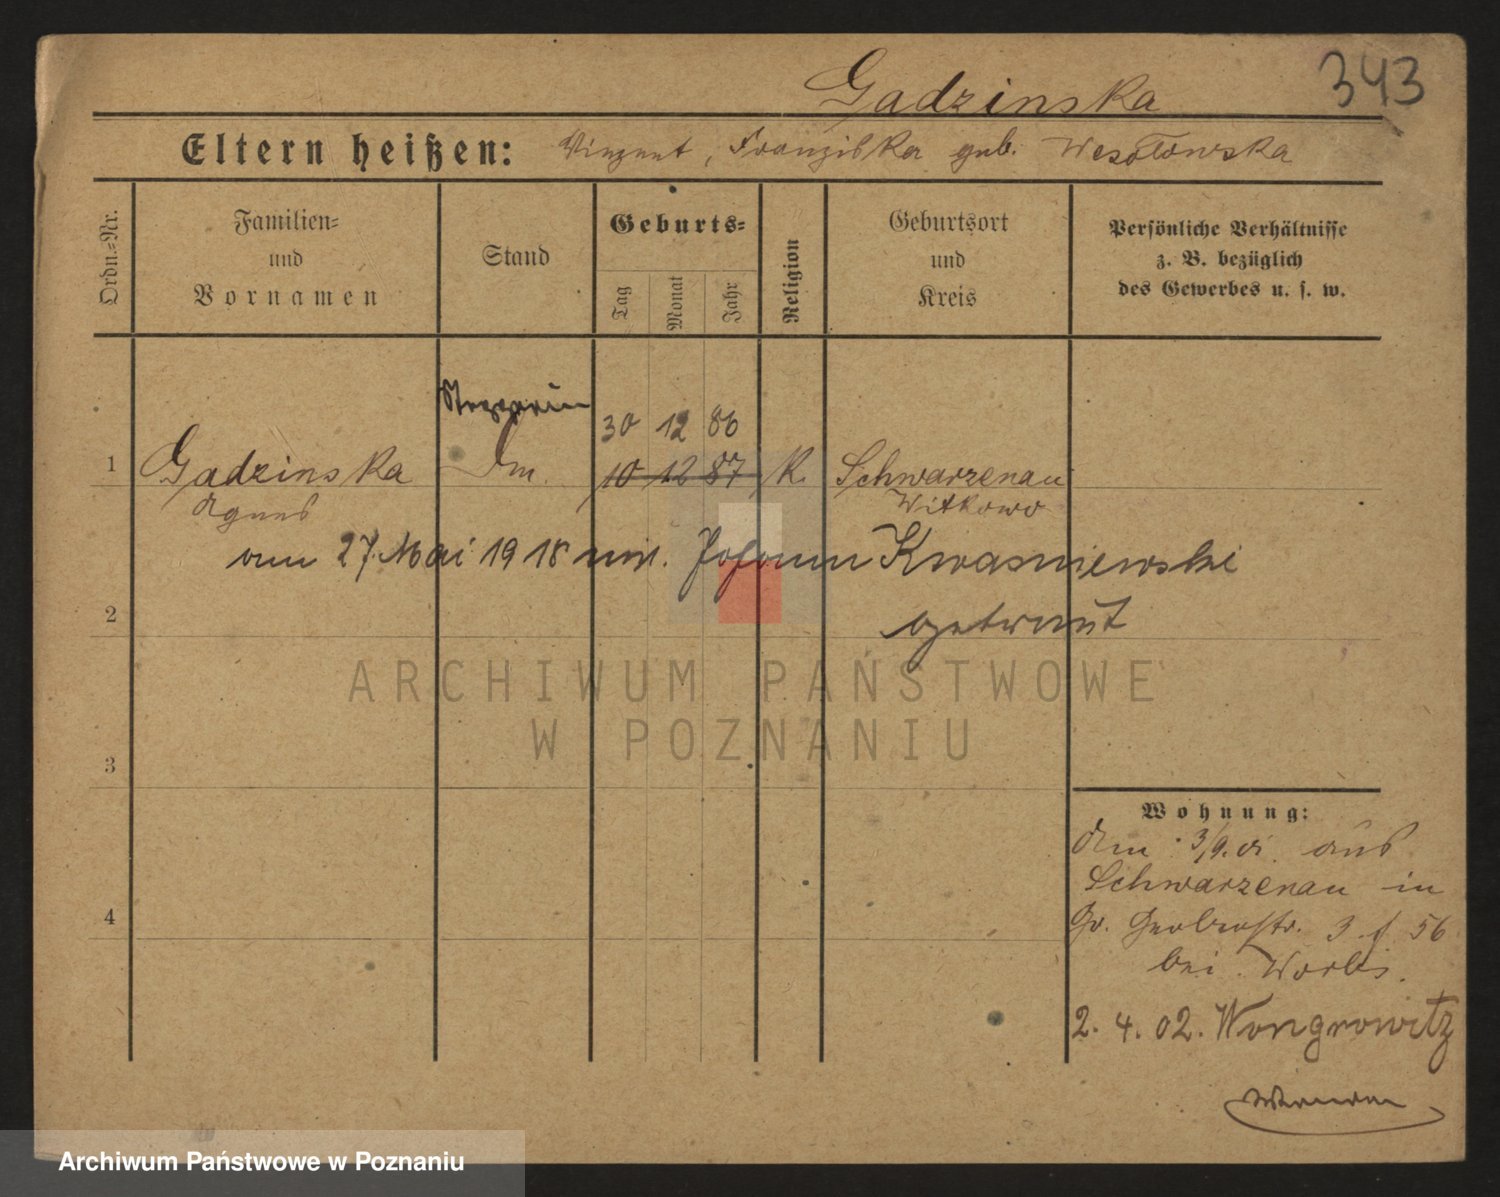 Gadzinska
343
Eltern heißen: Vinzent, Franziska geb. Wesołowska
Ordn.=Nr.
Familien=
und
Vornamen
Stand
Geburts=
Tag
Monat
Jahr
Religion
Geburtsort
und
Kreis
Persönliche Verhältnisse
z. B. bezüglich
des Gewerbes u. s. w.
30 12 86
1 Gadzinska 10 12 87 K. Schwarzenau
Agnes Witkowo
am 27. Mai 1918 mit Johann Kwasniewski
getraut
2
ARCHIWUM PAŃSTWOWE
W POZNANIU
3
Wohnung:
Am 3/9. 01. aus
Schwarzenau in
Gr. Gerberstr. 3 f 56
bei
4
2. 4. 02. Wongrowitz
Archiwum Państwowe w Poznaniu